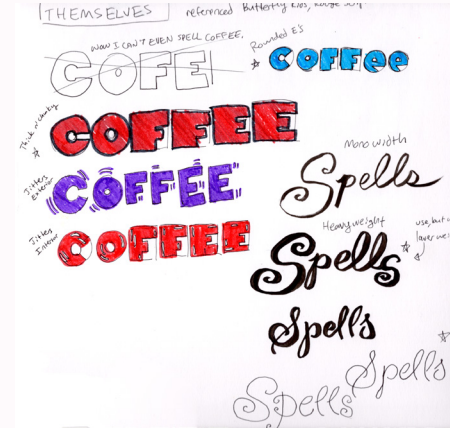 THEMSELVES
referenced Butterfly Kids,
WOW I CAN'T EVEN SPELL COFFEE.
COFE
Rounded E's
COFFee
Thick n' chunky
COFFEE
Jitters Exterior
COFFEE
Jitters Interior
COFFEE
Mono width
Spells
Heavy weight
Spells
use, but
Spells
Spells
Spells